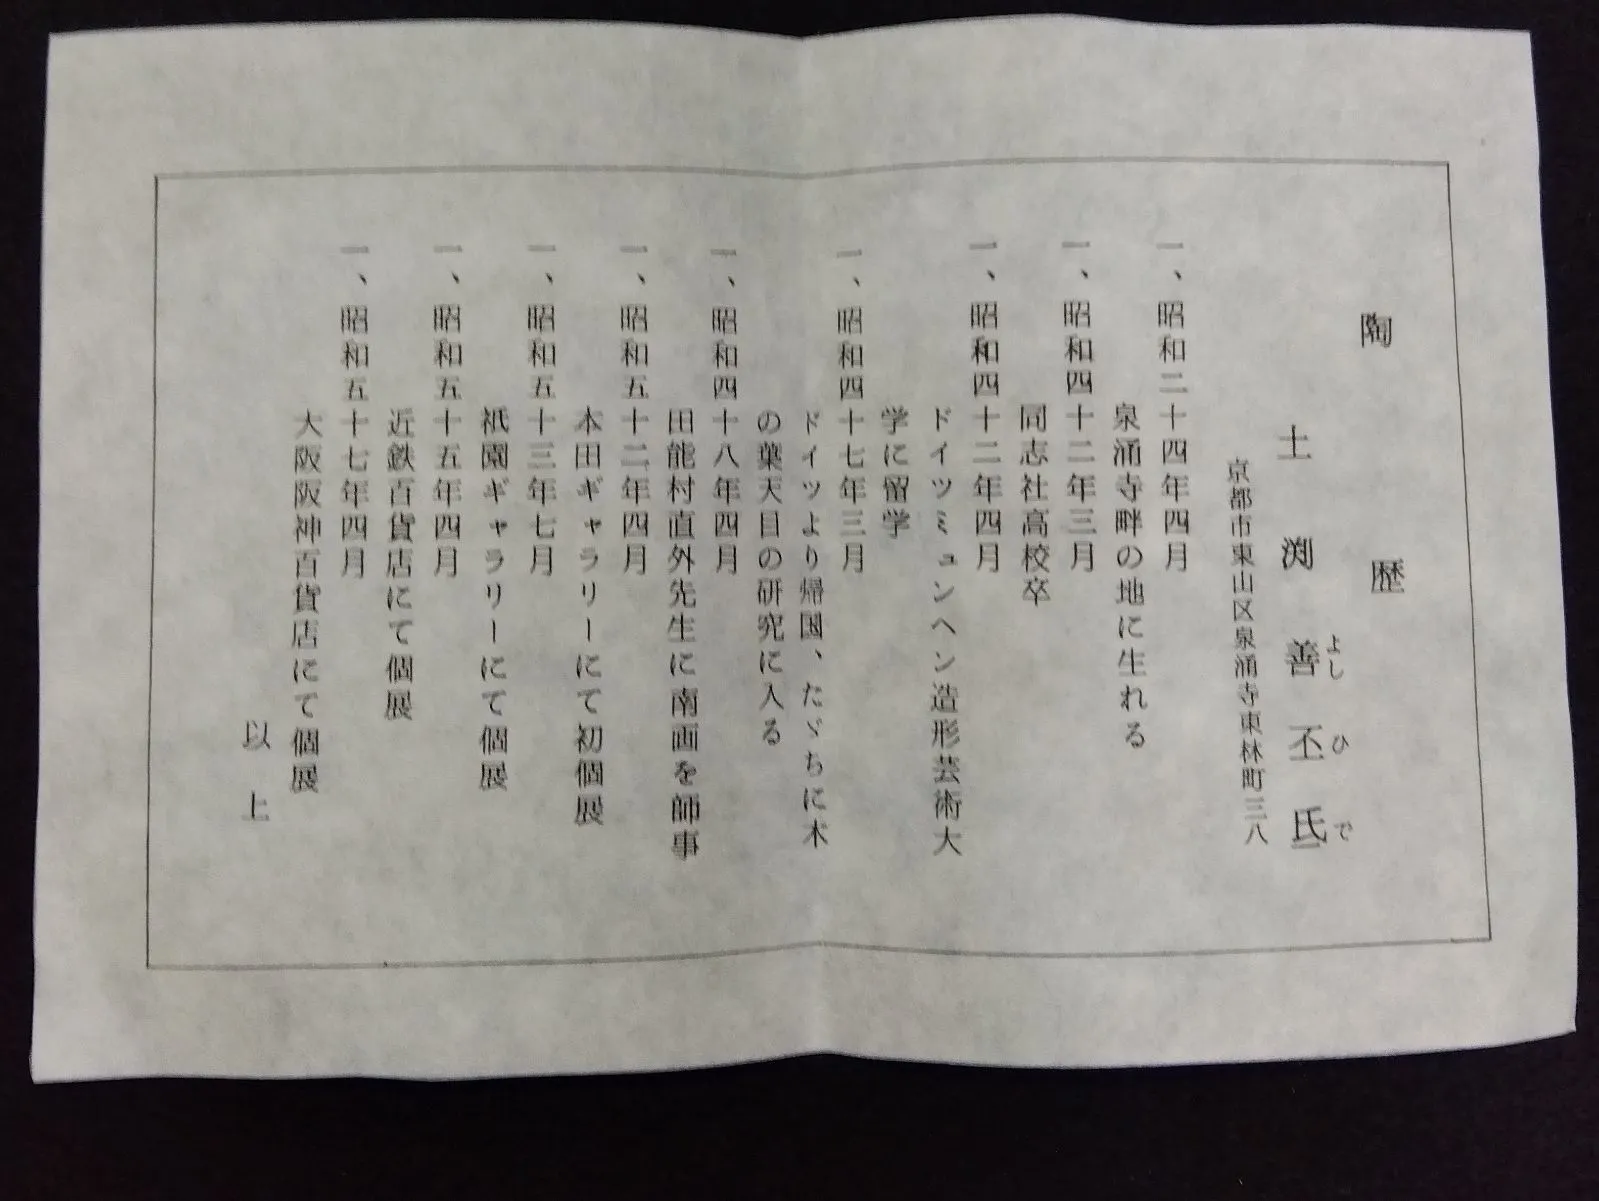 陶歴
土渕善丕氏
よしひで
京都市東山区泉涌寺東林町三八
一、昭和二十四年四月
泉涌寺畔の地に生れる
一、昭和四十二年三月
同志社高校卒
一、昭和四十二年四月
ドイツミュンヘン造形芸術大
学に留学
一、昭和四十七年三月
ドイツより帰国、たゞちに木
の葉天目の研究に入る
一、昭和四十八年四月
田能村直外先生に南画を師事
一、昭和五十二年四月
本田ギャラリーにて初個展
一、昭和五十三年七月
祇園ギャラリーにて個展
一、昭和五十五年四月
近鉄百貨店にて個展
一、昭和五十七年四月
大阪阪神百貨店にて個展
以上